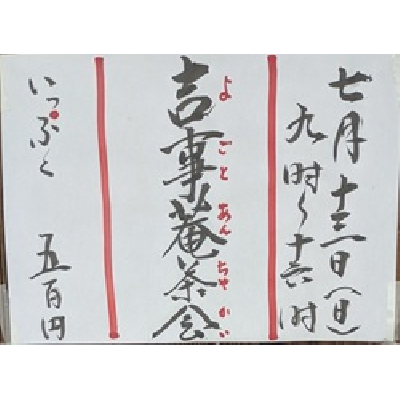 七月十三日(日)
九時〜十六時
吉事菴茶会
よごとあんちゃかい
いっぷく 五百円